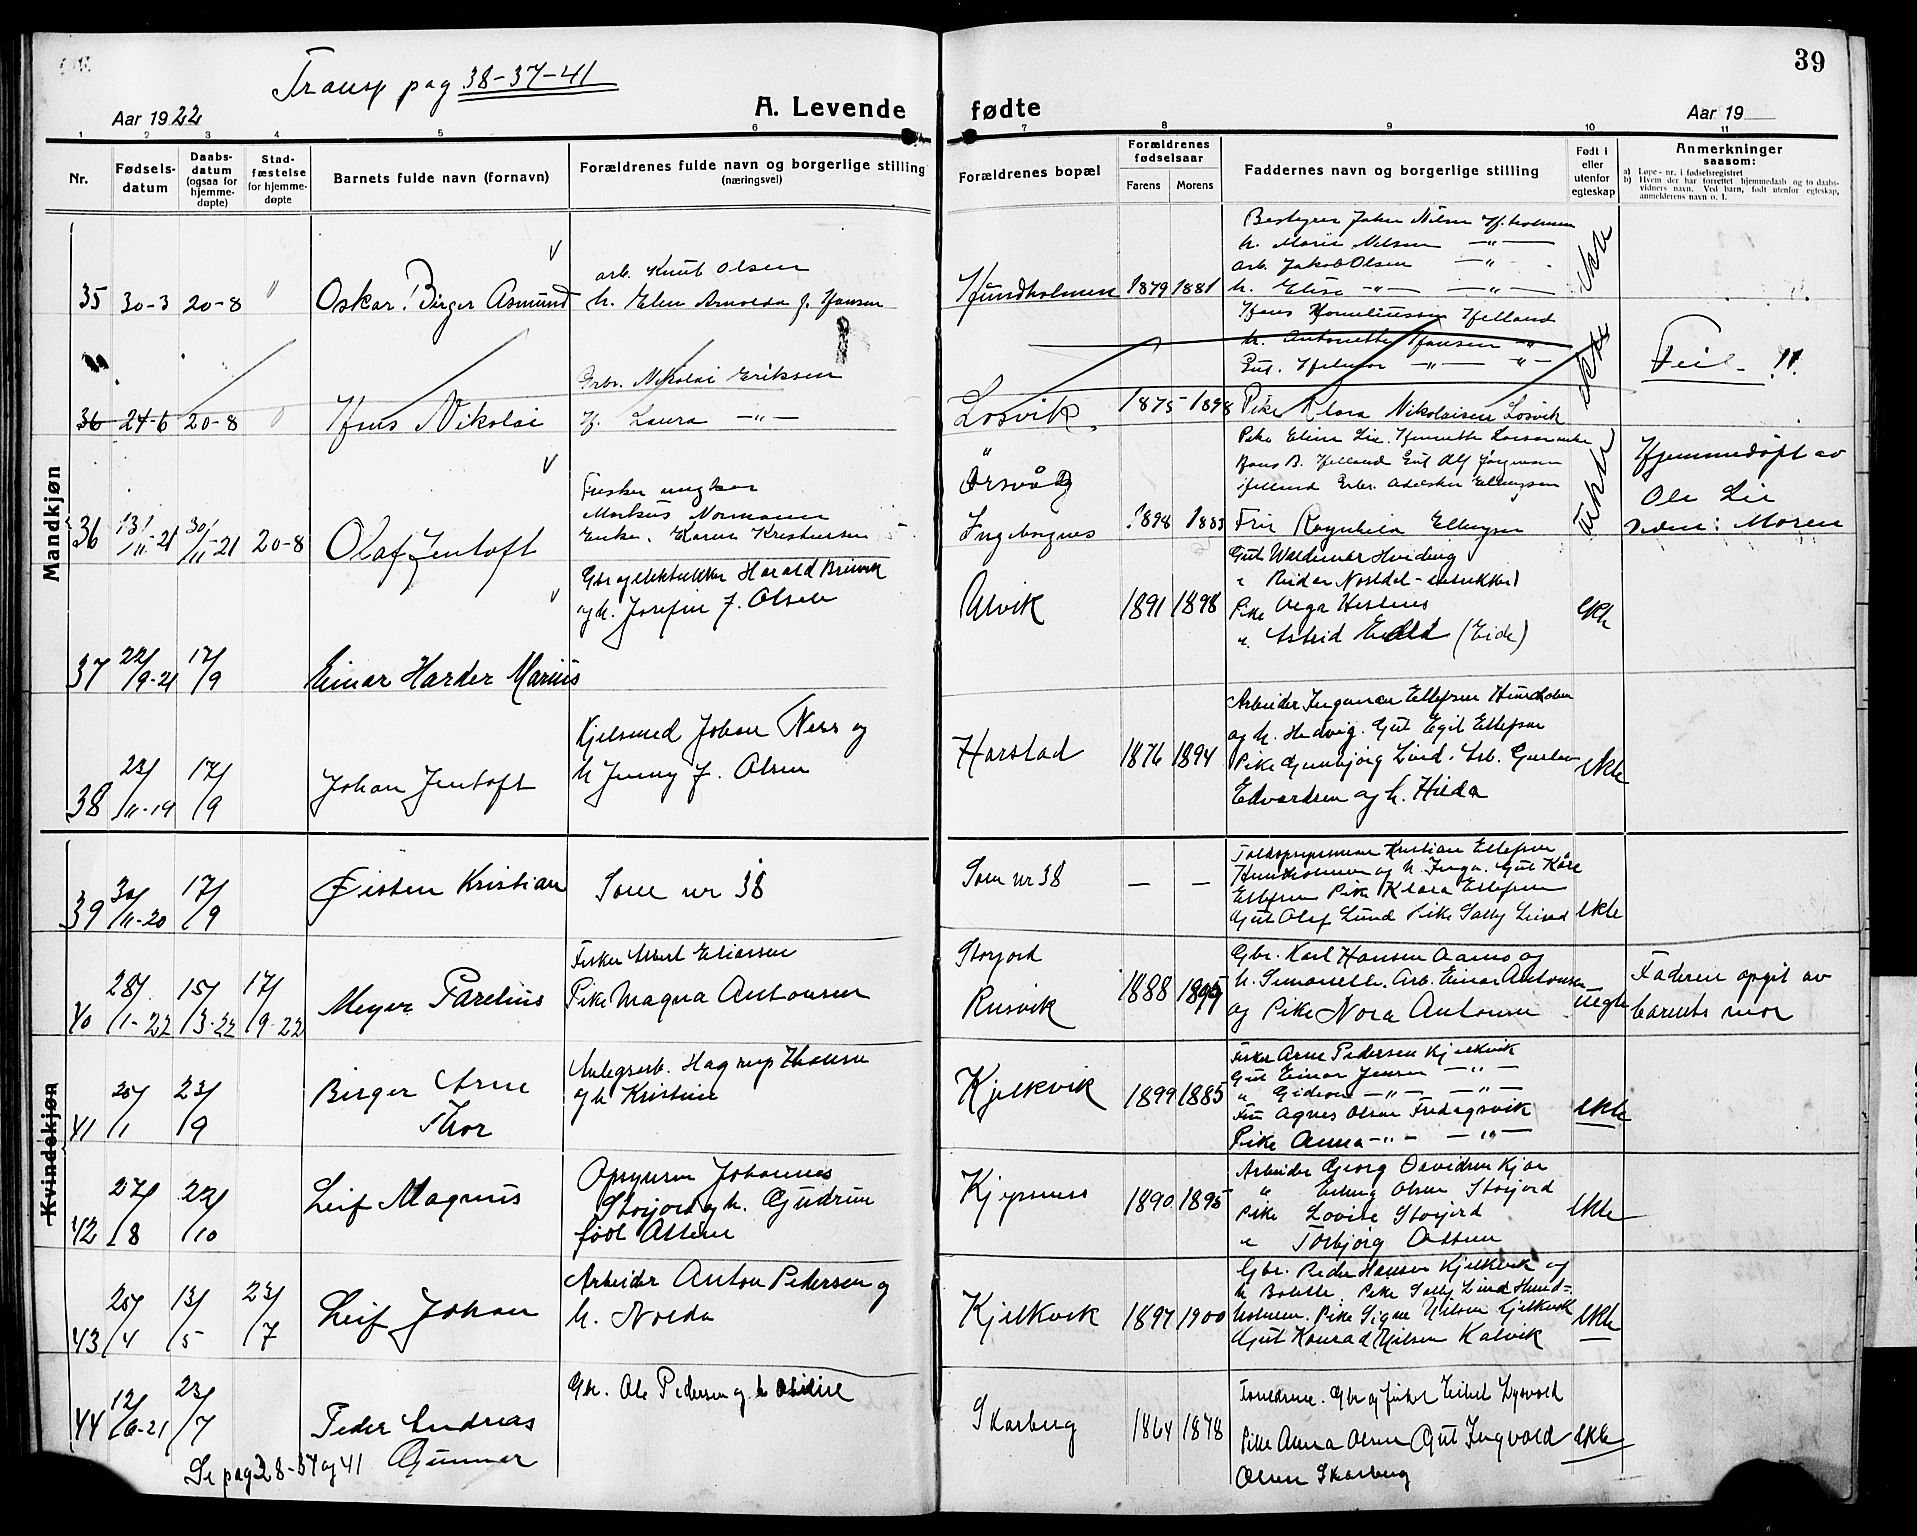 39
Transp pag 38-37-41
Aar 1922
A. Levende
fødte
Aar 19
1 2 3 4 5 6 7 8 9 10 11
Nr.
Fødsels-
datum
Daabs-
datum
(ogsaa for
hjemme-
døpte)
Stad-
fæstelse
for hjemme-
døpte
Barnets fulde navn (fornavn)
Forældrenes fulde navn og borgerlige stilling
(næringsvei)
Forældrenes bopæl
Forældrenes
fødselsaar
Farens
Morens
Faddernes navn og borgerlige stilling
Født i
eller
utenfor
egteskap
Anmerkninger
saasom:
a) Løpe-nr. i fødselsregistret
b) Hvem der har forrettet hjemmedaab og to daabs-
vidners navn. Ved barn, født utenfor egteskap,
anmelderens navn o. l.
Mandkjøn
35 30-3 20-8 " Oskar Birger Asmund
arb. Knut Olsen
h. Elen Arnolda f. Hansen
Hundholmen 1879 1881
Bestyrer Johan Nilsen Hundholmen
h. Marie Nilsen —"—
arb. Jakob Olsen —"—
h. Elise —"— —"—
ekte
36 24-6 20-8 Hans Nikolai
Grbr. Nikolai Eriksen
H. Laura —"—
Losvik 1875-1898
Hans Korneliussen Helland
h. Antonette Hansen —"—
Gut. Hilmar —"— —"—
Pike Klara Nikolaisen Losvik
ekte
Feil !!
36 13/11-21 30/11-21 20-8 Olaf Jentoft
Fisker ungkar
Markus Normann
Enke. Karen Kristensen
Örsvåg
Ingeborgnes
1898 1883
Pike Eline Lie.
Hans B. Helland Gut Alf Jørgensen
Helland Grbr. Ellingsen
Frk Ragnhild Ellingsen
Hjemmedøpt av
Ole Lie
Viden: Moren
37 22/9-21 17/9 Einar Harder Marius
Gbr og Harald Breivik
og h. Josefine f. Olsen
Ulvik 1891 1898
Gut Waldemar Hviding
" Reidar Nordal
Pike Olga Hestnes
" Astrid (Eide)
ekte
38 23/11-19 17/9 Johan Jentoft
Kjelsmed Johan Ness og
h Jenny f. Olsen
Harstad 1876 1894
Arbeider Ingemar Ellefsen Hundholmen
og h. Hedvig. Gut Egil Ellefsen
Pike Gunbjørg Lind. Arb. Gustav
Edvardsen og h. Hilda
ekte
39 30/11-20 17/9 Øistein Kristian
Som nr 38
Som nr 38 — —
Kristian Ellefsen
Hundholmen og h. Inga. Gut Kåre
Ellefsen Pike Klara Ellefsen
Gut Olaf Lund Pike Sally Lind
ekte
Kvindekjøn
40 28/1-22 15/3-22 17/9-22 Meyer Parelius
Fisker Albert Eliassen
Pike Magna Antonsen
Storjord
Rusvik
1888 1899
Gbr. Karl Hansen Aamo og
h. Simonette. Arb. Einar Antonsen
og Pike Nora Antonsen
uegte
Faderen opgit av
barnets mor
41 25/1 23/9 Birger Arne
Thor
Anlegsarb. Hagrup Hansen
og h Kristine
Kjelkvik 1899 1885
Fisker Arne Pedersen Kjelkvik
Gut Einar Jensen —"—
" Gideon —"— —"—
Fru Agnes Olsen Fredagsvik
Pike Anna —"— —"—
ekte
42 27/8 22/10 Leif Magnus
Opsynsm Johannes
Storjord og h. Gudrun
født Assem
Kjepsnes 1890 1895
Arbeider Georg Davidsen Kjær
" Erling Olsen Storjord
Pike Lovise Storjord
" Torbjørg Assem
ekte
43 25/4 13/5 23/7 Leif Johan
Arbeider Anton Pedersen og
h. Nolda
Kjelkvik 1897 1900
Gbr. Peder Hansen Kjelkvik og
h Bolette. Pike Sally Lind Hund-
holmen. Pike Signe Nilsen Kjelkvik
Gut Konrad Nilsen Kalvik
ekte
44 12/6-21 23/7 Peder Andreas
Gunnar
Gbr. Ole Pedersen og h
Skarberg 1864 1878
Foreldrene. Gbr og fisker Eilert Lysvold
Pike Anna Olsen Gut Ingvald
Olsen Skarberg
ekte
Se pag 38-37 og 41